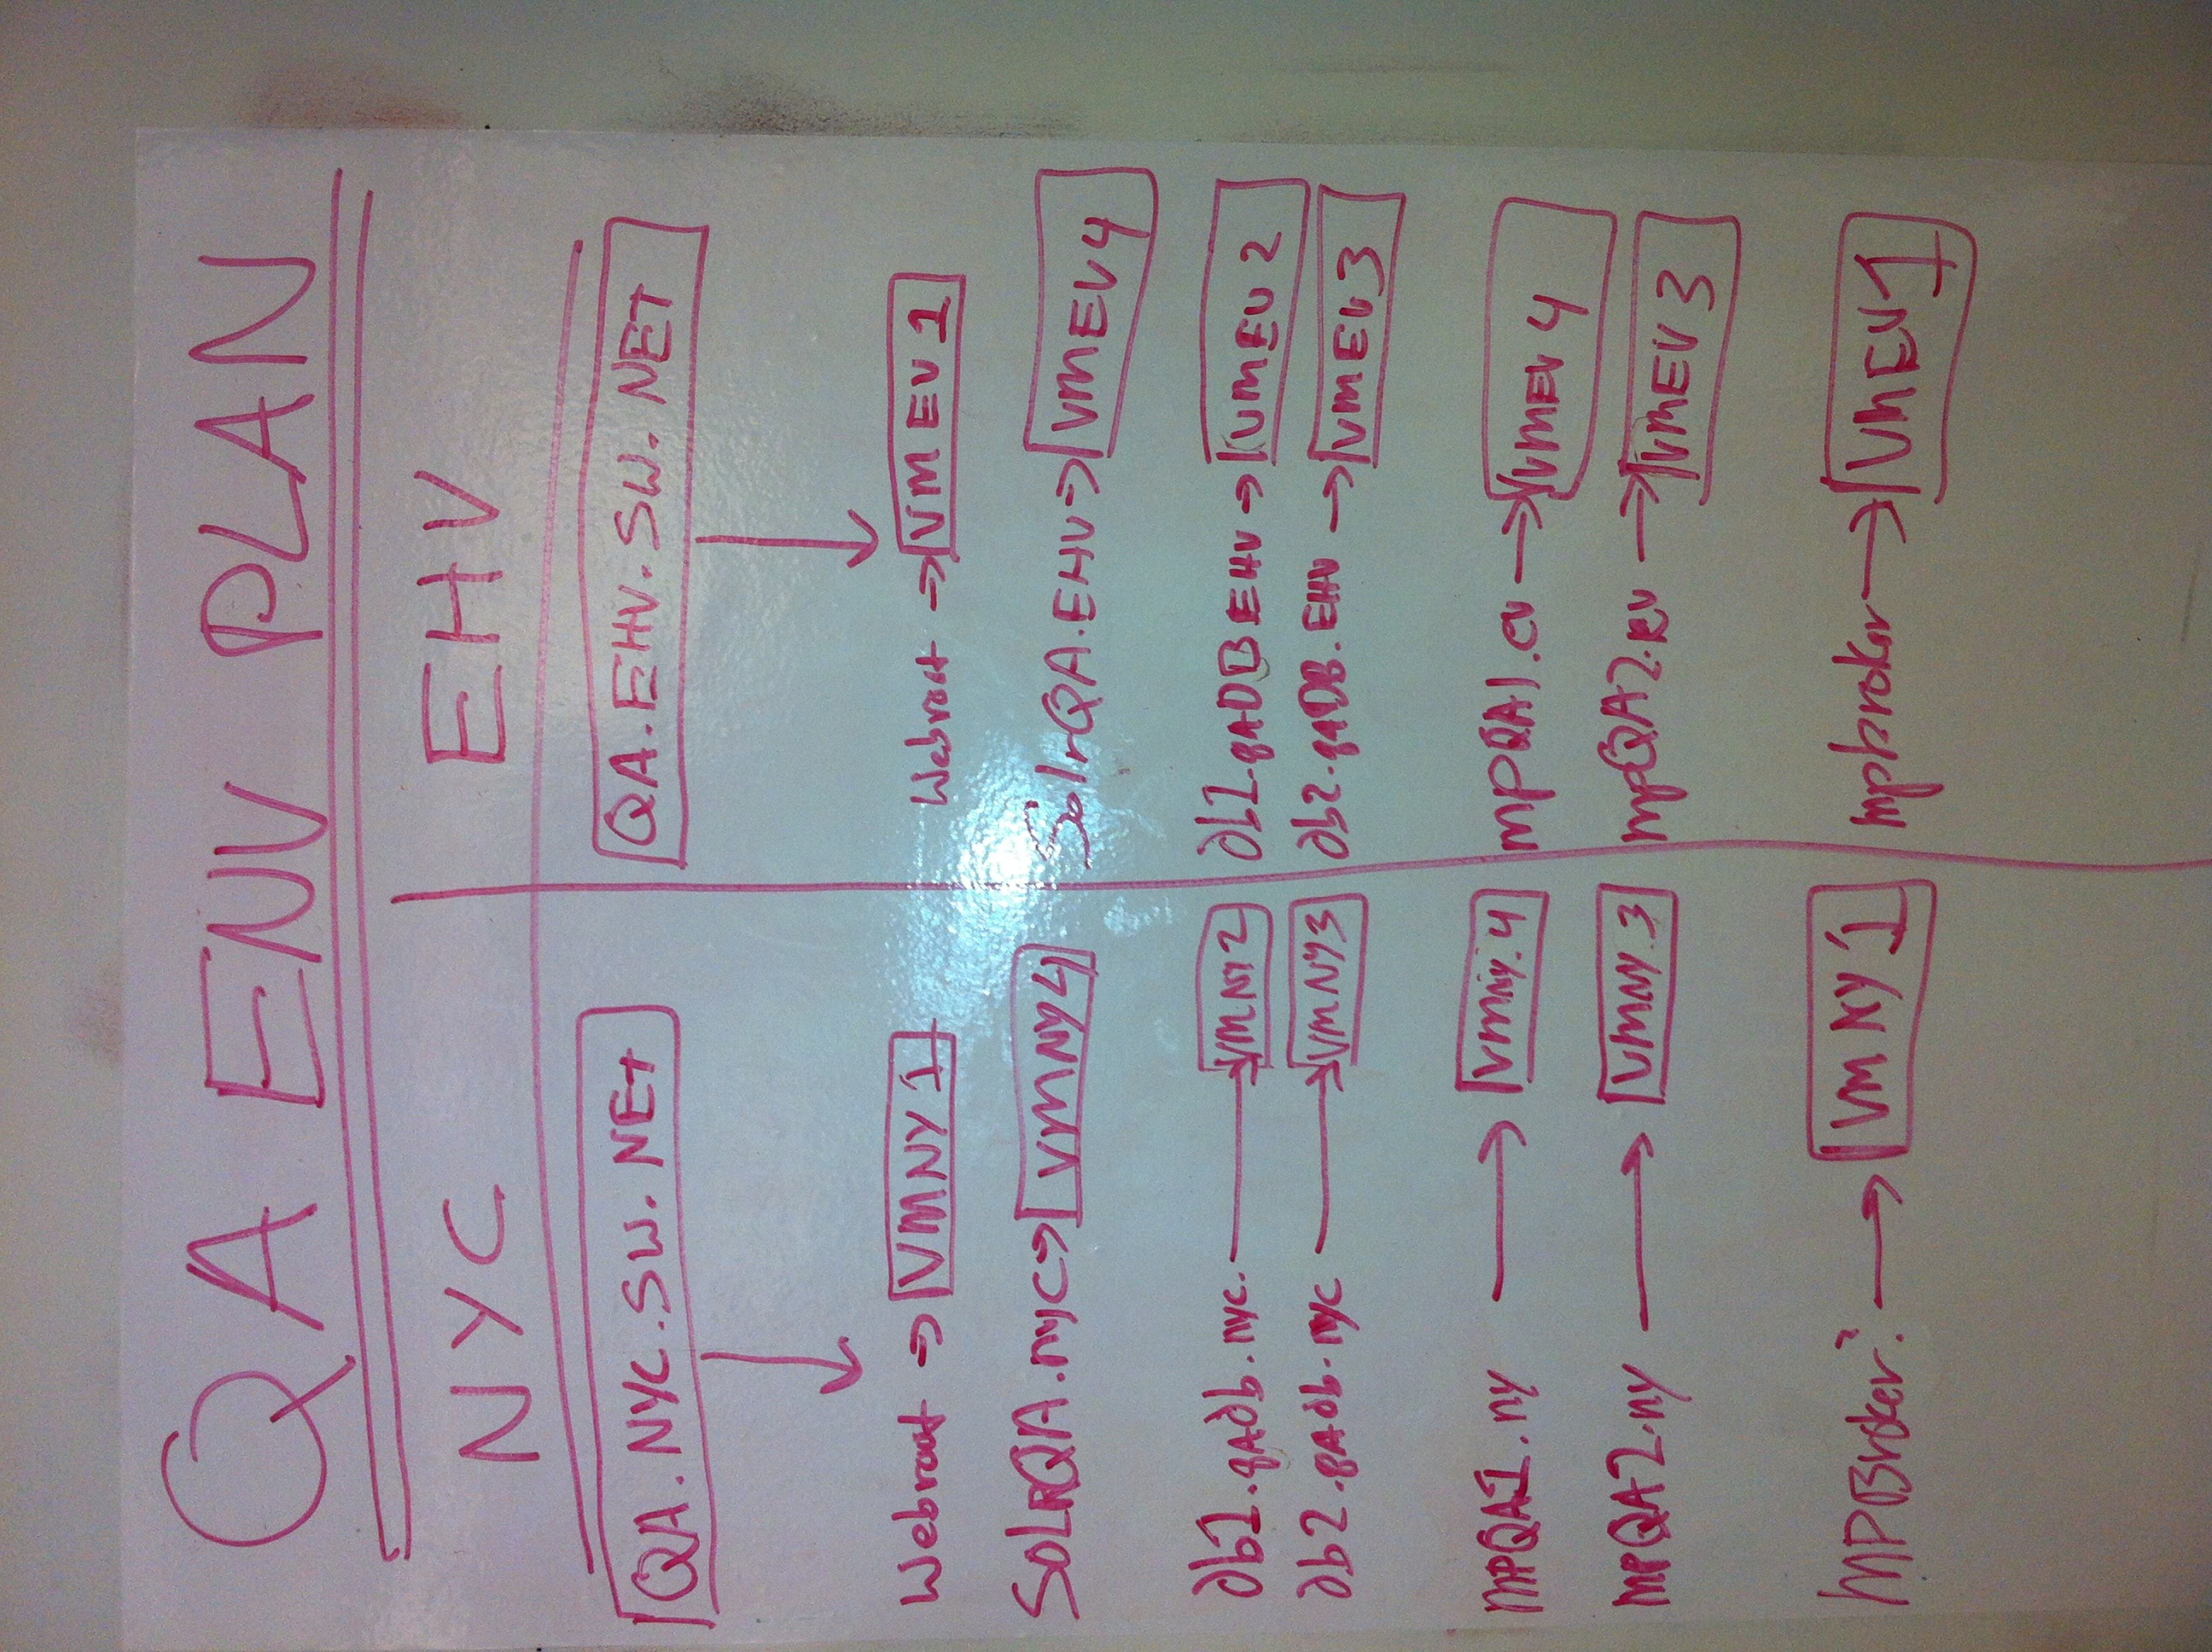 QA ENV PLAN
NYC
QA.NYC.SW.NEt
Webroot → VMNY1
SOLRQA.nyc → VMNY4
db1.qAdb.nyc. → VMNY2
db2.qAdb.nyc → VMNY3
MPQA1.ny → VMny.4
MPQA2.ny → VMNY.3
MPBroker? → VMNY1
EHV
QA.EHV.SW.NET
Webroot → VMEV1
SolrQA.EHV → VMEV4
db1.qADBEHV → VMEV2
db2.qADB.EHV → VMEV3
mpQA1.ev → VMEV4
mpQA2.ev → VMEV3
mpbroker → VMEV1